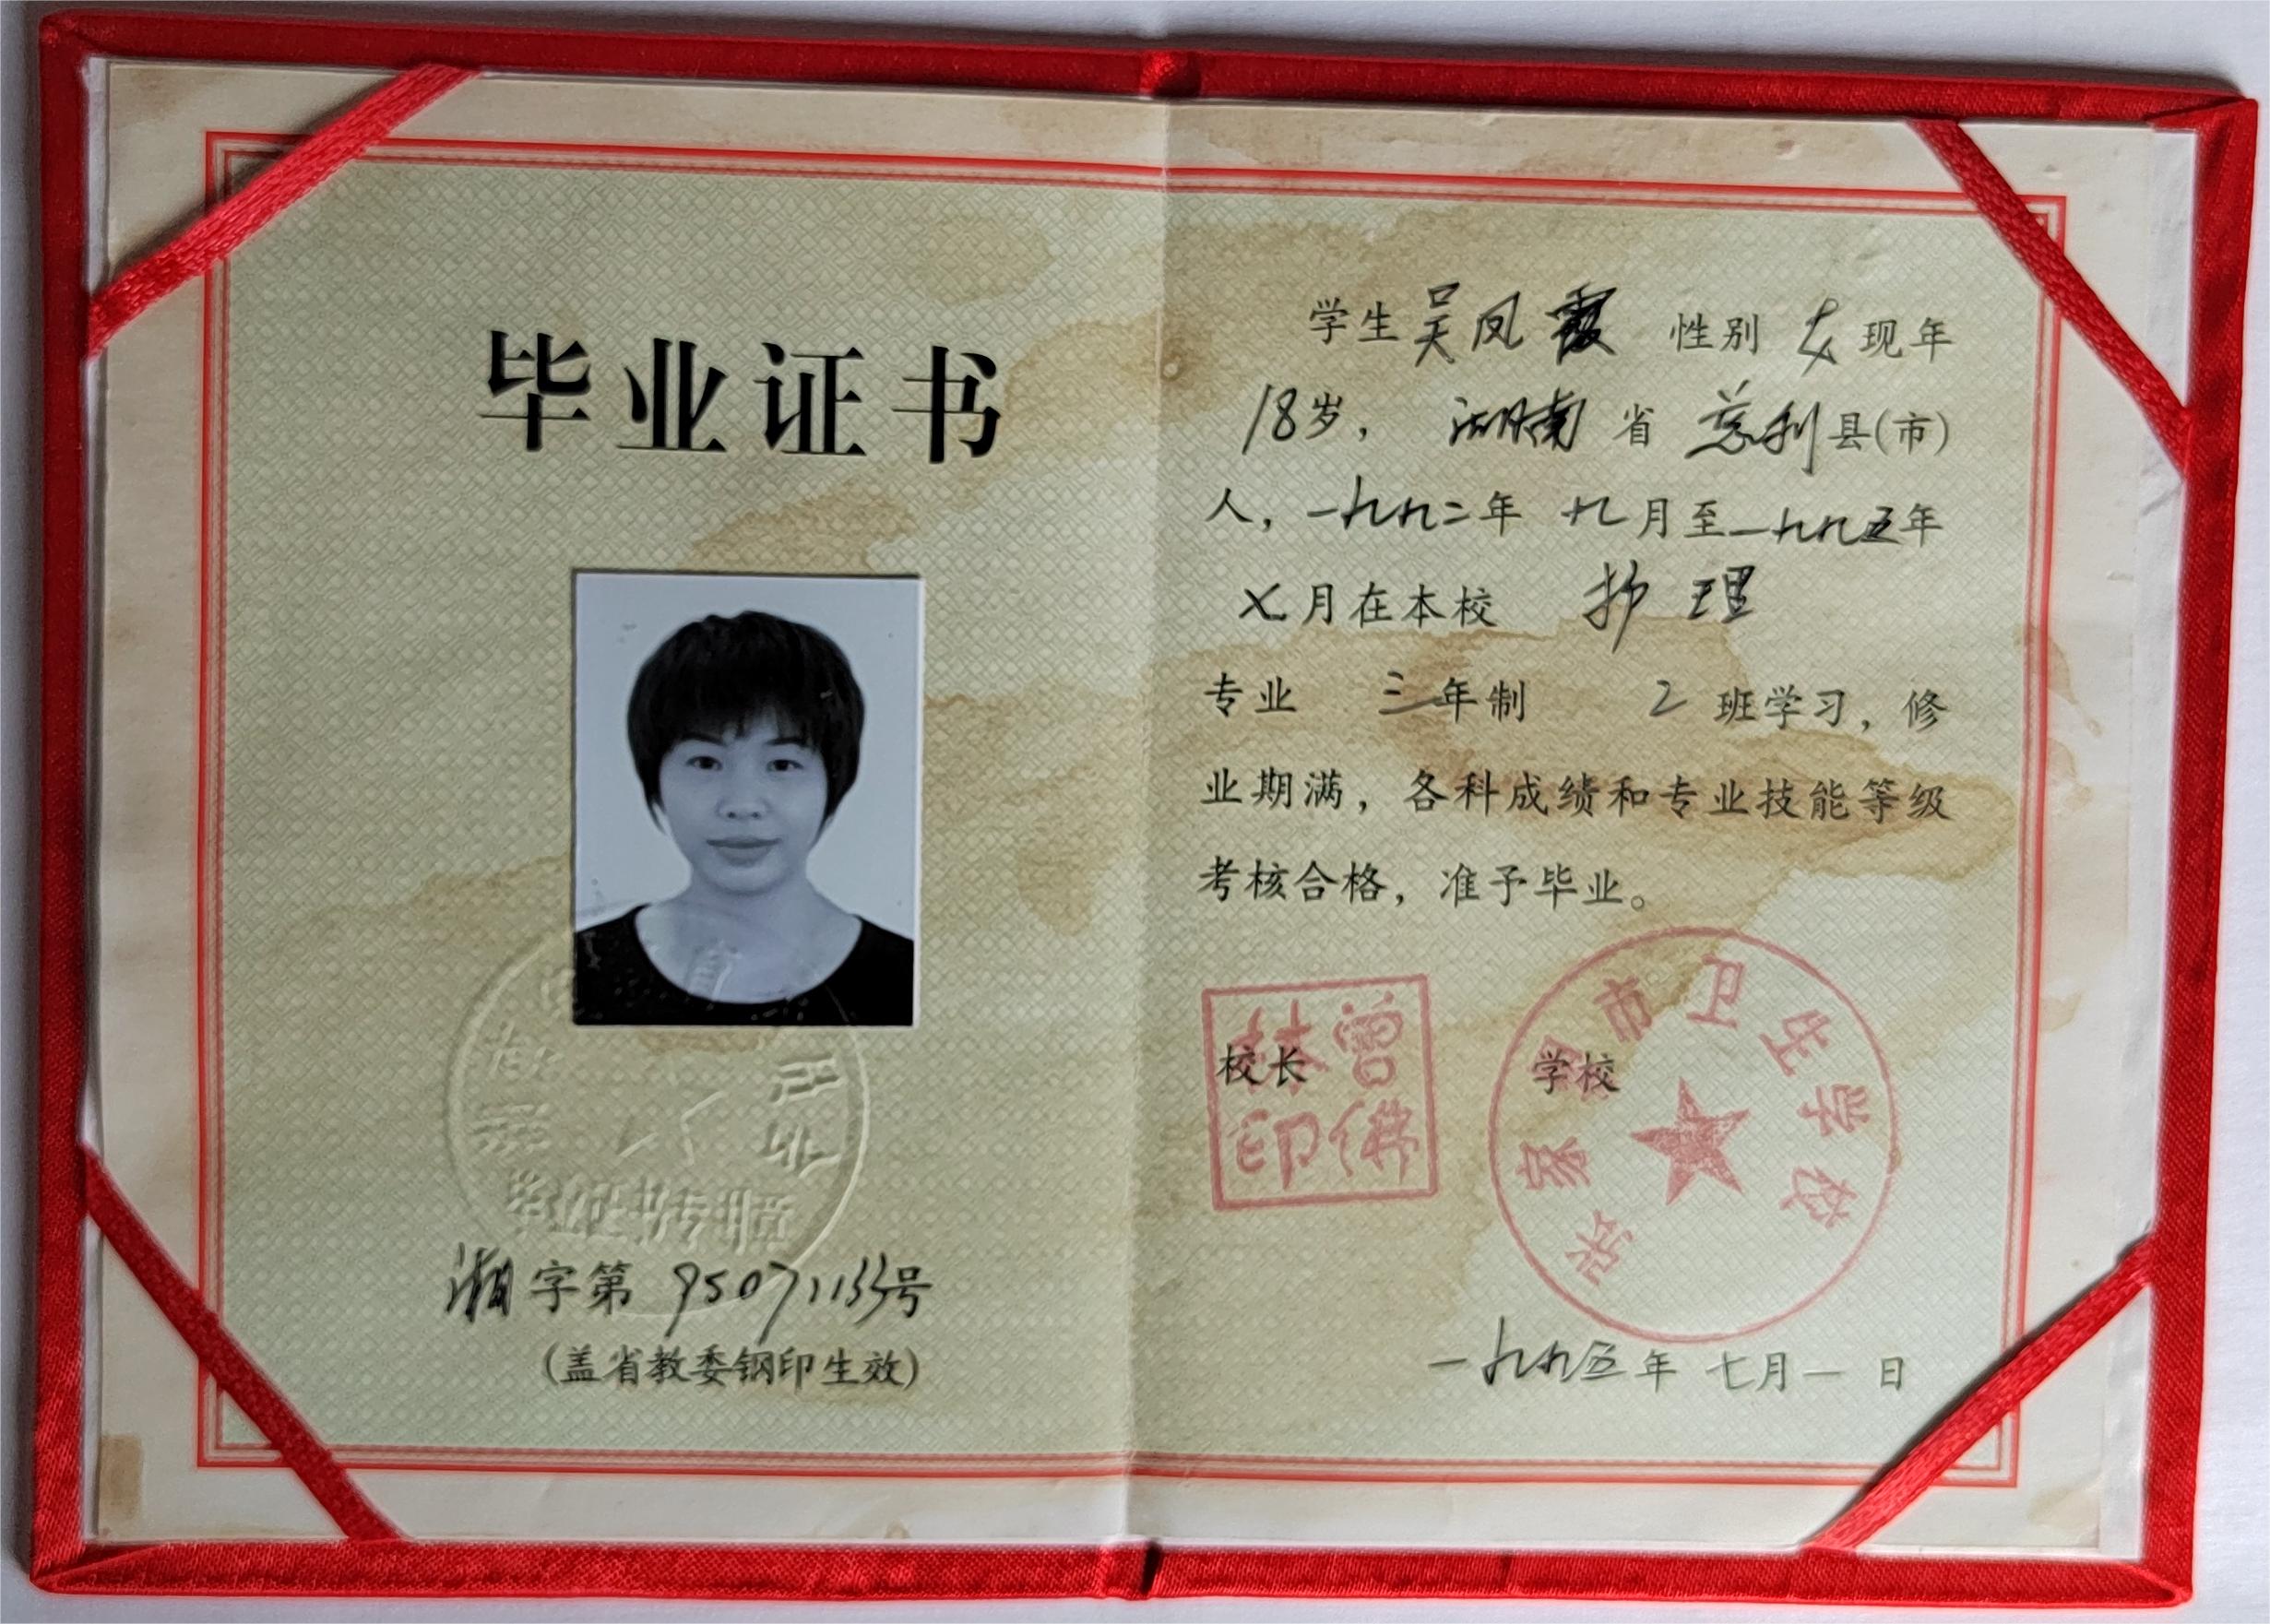 毕业证书
湘字第95071133号
(盖省教委钢印生效)
学生吴凤霞 性别 女 现年
18岁， 湖南 省 慈利 县(市)
人，一九九二年 九月至一九九五年
七月在本校 护理
专业 三年制 2 班学习，修
业期满，各科成绩和专业技能等级
考核合格，准予毕业。
校长 学校
曾佛林印
张家界市卫生学校
一九九五年 七月一日